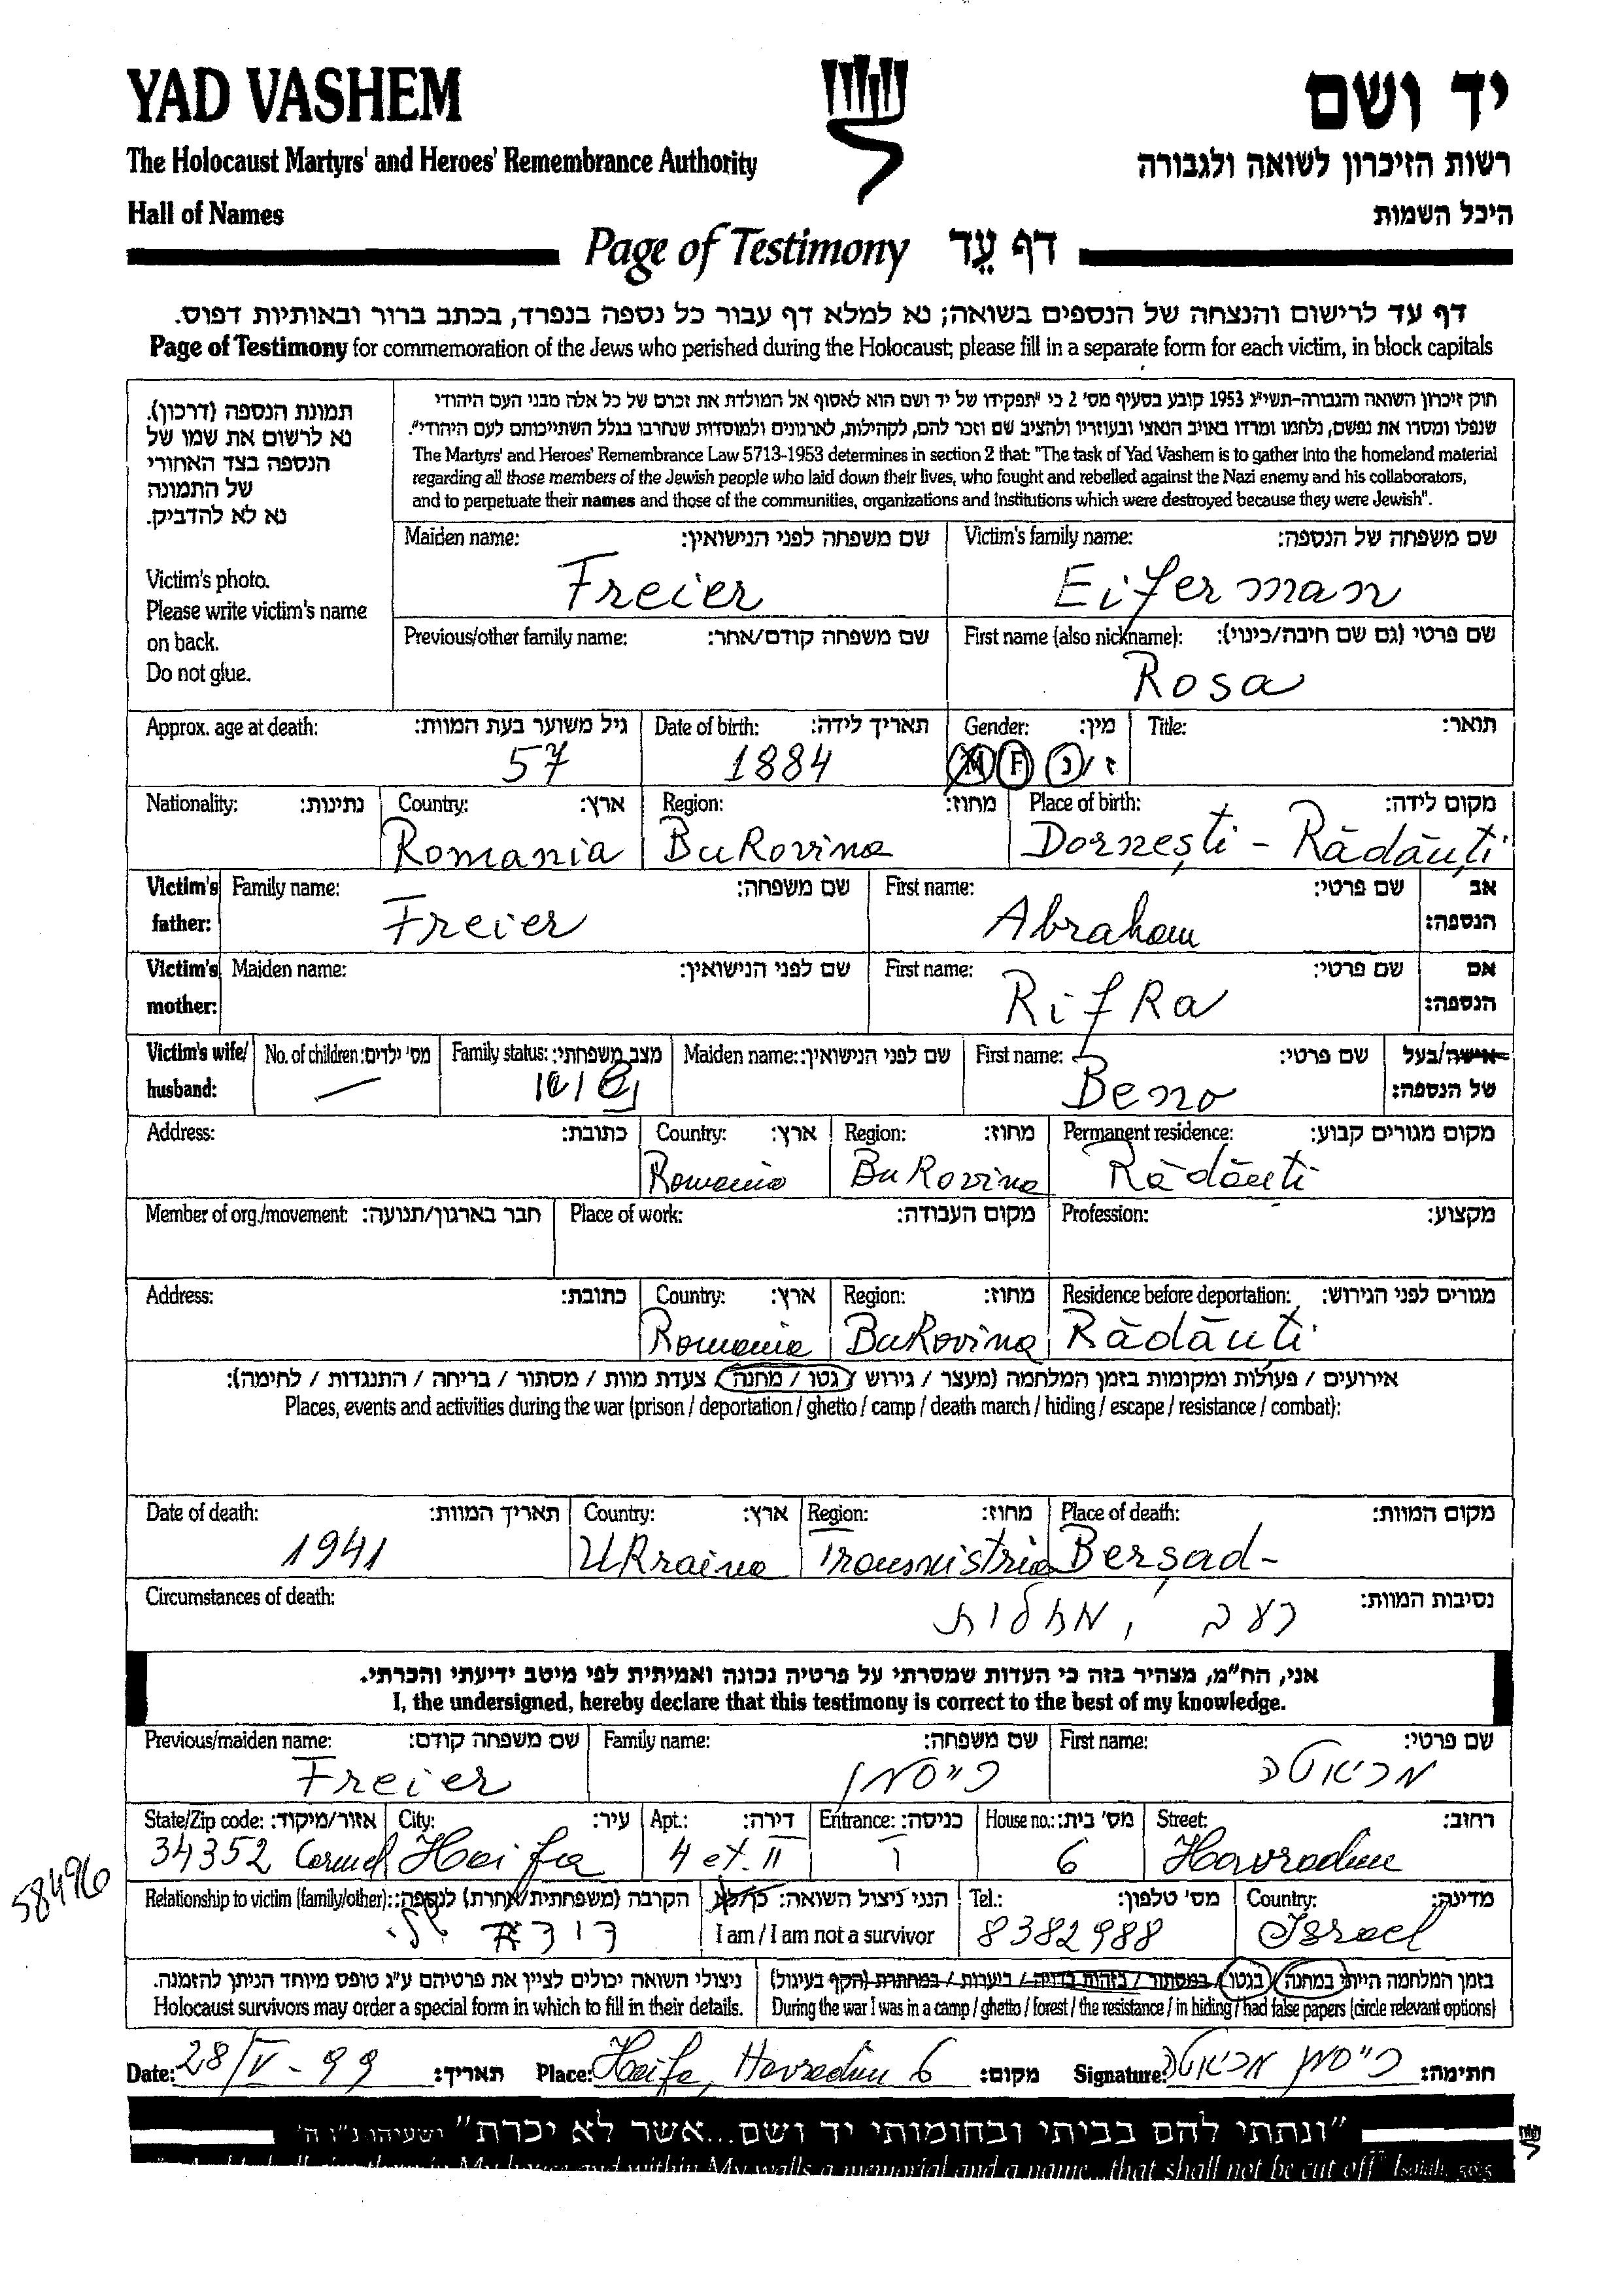 YAD VASHEM
יד ושם
The Holocaust Martyrs' and Heroes' Remembrance Authority
רשות הזיכרון לשואה ולגבורה
Hall of Names
היכל השמות
Page of Testimony דף עֵד
דף עד לרישום והנצחה של הנספים בשואה; נא למלא דף עבור כל נספה בנפרד, בכתב ברור ובאותיות דפוס.
Page of Testimony for commemoration of the Jews who perished during the Holocaust; please fill in a separate form for each victim, in block capitals
תמונת הנספה (דרכון).
נא לרשום את שמו של
הנספה בצד האחורי
של התמונה
נא לא להדביק.
Victim's photo.
Please write victim's name
on back.
Do not glue.
חוק זיכרון השואה והגבורה-תשי"ג 1953 קובע בסעיף מס' 2 כי "תפקידו של יד ושם הוא לאסוף אל המולדת את זכרם של כל אלה מבני העם היהודי
שנפלו ומסרו את נפשם, נלחמו ומרדו באויב הנאצי ובעוזריו ולהציב שם וזכר להם, לקהילות, לארגונים ולמוסדות שנחרבו בגלל השתייכותם לעם היהודי".
The Martyrs' and Heroes' Remembrance Law 5713-1953 determines in section 2 that: "The task of Yad Vashem is to gather into the homeland material
regarding all those members of the Jewish people who laid down their lives, who fought and rebelled against the Nazi enemy and his collaborators,
and to perpetuate their names and those of the communities, organizations and institutions which were destroyed because they were Jewish".
Maiden name: שם משפחה לפני הנישואין: Victim's family name: שם משפחה של הנספה:
Freier Eiferman
Previous/other family name: שם משפחה קודם/אחר: First name (also nickname): שם פרטי (גם שם חיבה/כינוי):
Rosa
Approx. age at death: גיל משוער בעת המוות: Date of birth: תאריך לידה: Gender: מין: Title: תואר:
57 1884 M F ז / נ
Nationality: נתינות: Country: ארץ: Region: מחוז: Place of birth: מקום לידה:
Romania BuKovina Dornești - Rădăuți
Victim's father: Family name: שם משפחה: First name: שם פרטי: אב הנספה:
Freier Abraham
Victim's mother: Maiden name: שם לפני הנישואין: First name: שם פרטי: אם הנספה:
RifRa
Victim's wife/ husband: No. of children: מס' ילדים: Family status: מצב משפחתי: Maiden name: שם לפני הנישואין: First name: שם פרטי: אישה/בעל של הנספה:
— Beno
Address: כתובת: Country: ארץ: Region: מחוז: Permanent residence: מקום מגורים קבוע:
Romania BuKovina Rădăuti
Member of org./movement: חבר בארגון/תנועה: Place of work: מקום העבודה: Profession: מקצוע:
Address: כתובת: Country: ארץ: Region: מחוז: Residence before deportation: מגורים לפני הגירוש:
Romania BuKovina Rădăuti
אירועים / פעולות ומקומות בזמן המלחמה (מעצר / גירוש / גטו / מחנה / צעדת מוות / מסתור / בריחה / התנגדות / לחימה):
Places, events and activities during the war (prison / deportation / ghetto / camp / death march / hiding / escape / resistance / combat):
Date of death: תאריך המוות: Country: ארץ: Region: מחוז: Place of death: מקום המוות:
1941 UKraina Transnistria Bersad-
Circumstances of death: נסיבות המוות:
רעב, מחלות
אני, הח"מ, מצהיר בזה כי העדות שמסרתי על פרטיה נכונה ואמיתית לפי מיטב ידיעתי והכרתי.
I, the undersigned, hereby declare that this testimony is correct to the best of my knowledge.
Previous/maiden name: שם משפחה קודם: Family name: שם משפחה: First name: שם פרטי:
Freier רייסמן מריאטה
State/Zip code: אזור/מיקוד: City: עיר: Apt.: דירה: Entrance: כניסה: House no.: מס' בית: Street: רחוב:
34352 Carmel Haifa 4 et. II I 6 Havradim
58496
Relationship to victim (family/other): הקרבה (משפחתית/אחרת) לנספה: הנני ניצול השואה: כן/לא Tel.: מס' טלפון: Country: מדינה:
דודה שלי I am / I am not a survivor 8382988 Israel
ניצולי השואה יכולים לציין את פרטיהם ע"ג טופס מיוחד הניתן להזמנה.
Holocaust survivors may order a special form in which to fill in their details.
בזמן המלחמה הייתי במחנה / בגטו / במסתור / בזהות בדויה / ביערות / במחתרת (הקף בעיגול)
During the war I was in a camp / ghetto / forest / the resistance / in hiding / had false papers (circle relevant options)
Date: 28/V-99 תאריך: Place: Haifa, Havradim 6 מקום: Signature: רייסמן מריאטה חתימה:
"ונתתי להם בביתי ובחומותי יד ושם...אשר לא יכרת" ישעיהו נ"ו ה'
in My house and within My walls a memorial and a name...that shall not be cut off" Isaiah, 56:5